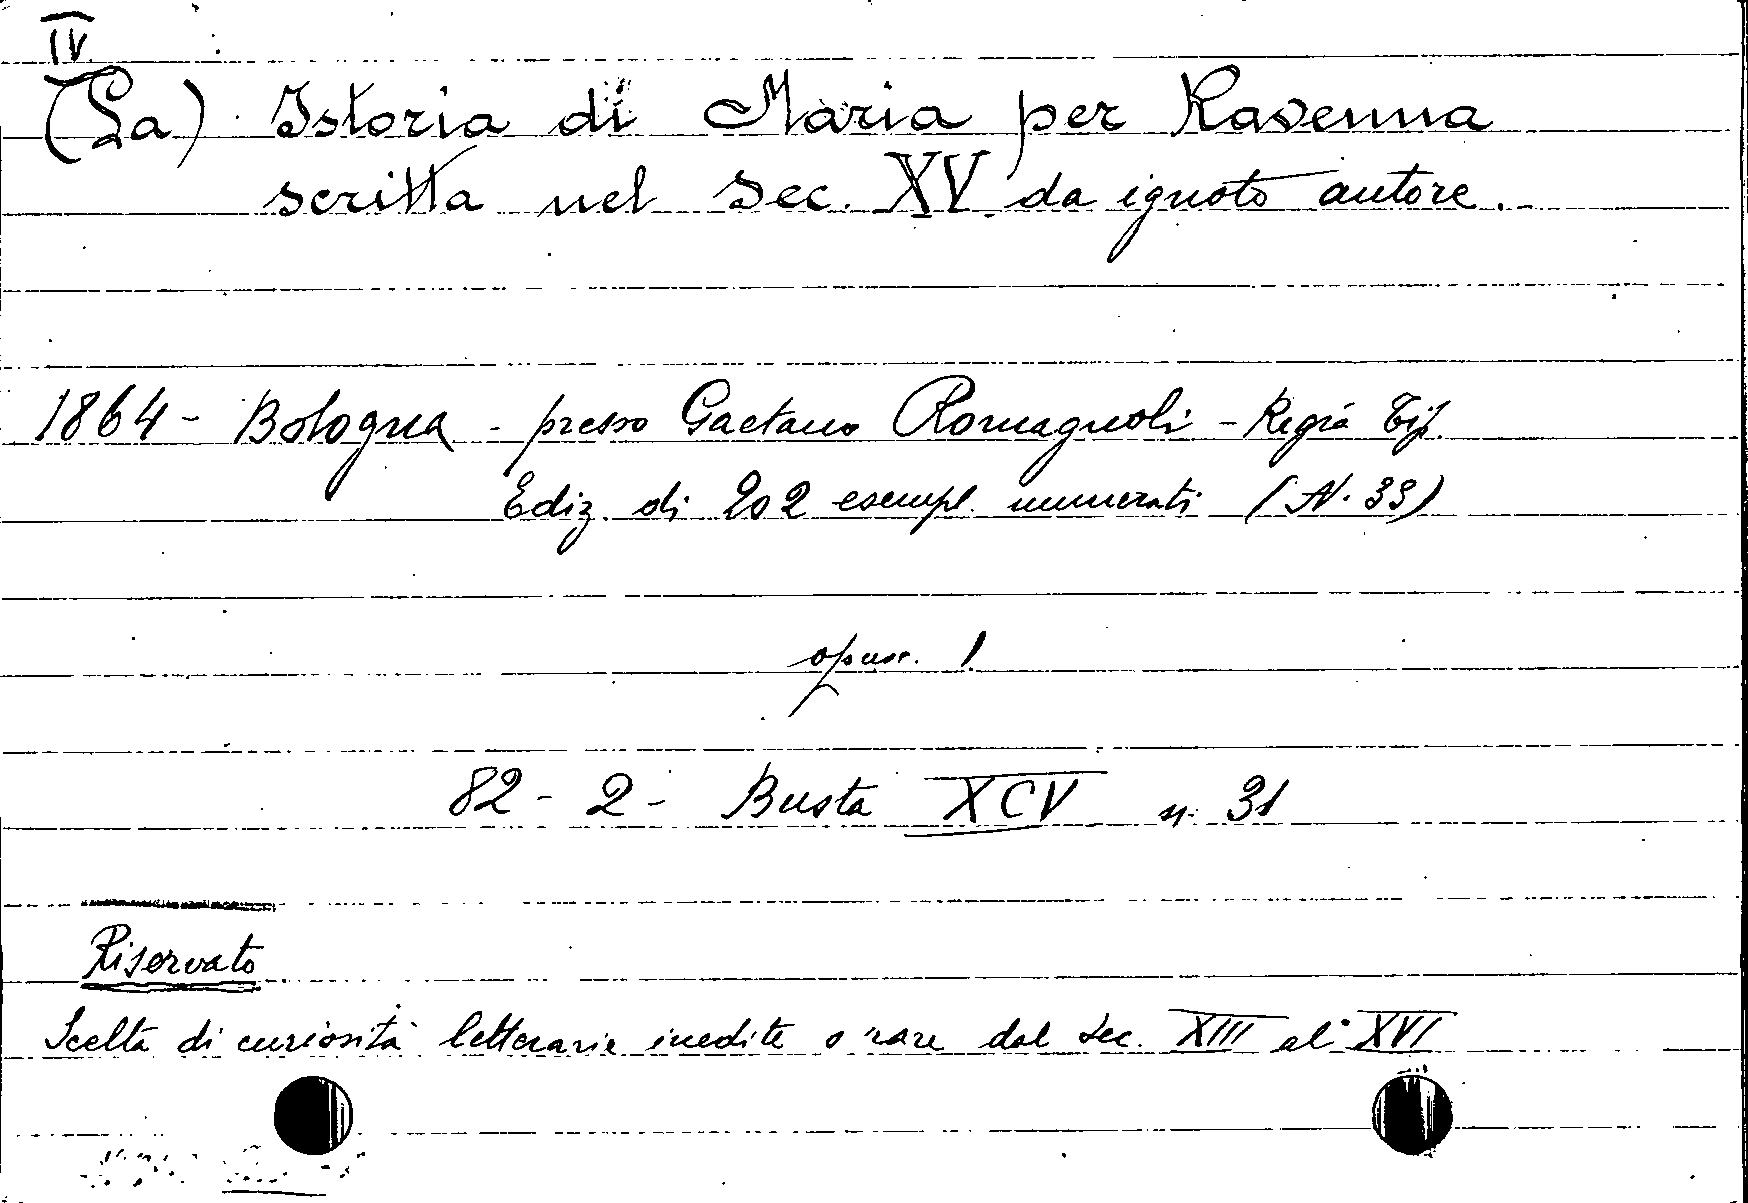 IV
(La) Istoria di Maria per Ravenna
scritta nel sec. XV da ignoto autore.
1864 - Bologna - presso Gaetano Romagnoli - Regia Tip.
Ediz. di 202 esempl. numerati (N. 33)
opusc. 1
82 - 2 - Busta XCV n. 31
Riservato
Scelta di curiosità letterarie inedite o rare dal sec. XIII al XVI